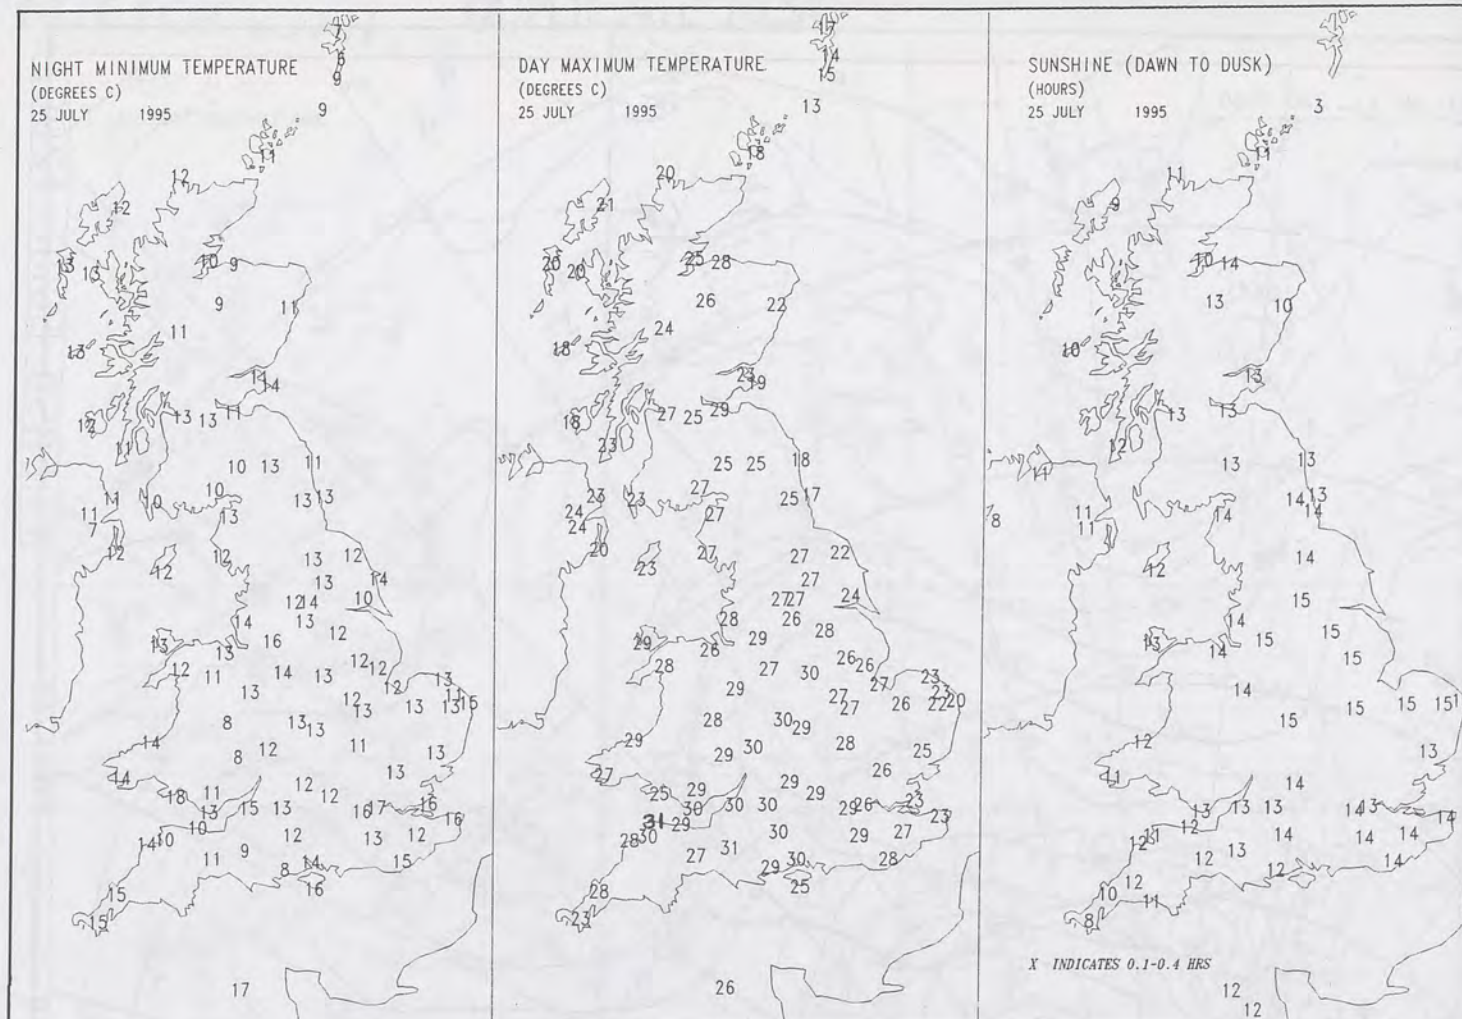 NIGHT MINIMUM TEMPERATURE
(DEGREES C)
25 JULY 1995
7
6
9
9
11
12
12
13 13
10 9
9 11
11
13
11
14
12 13 13 11
11
10 13 11
10
11 10 13 13
11 13
7
12 12 13 12
12 13 14
12 14 10
14 13
13 16 12
13 12
12 11 14 13 12 13
13 12 12 13 11 15
8 13 13 13
14 8 12 11 13
14 12 13
18 11 12
13 15 13 16 17 16 16
10
14 10 12 13 12
11 9 8 14 15
15 16
15
17
DAY MAXIMUM TEMPERATURE
(DEGREES C)
25 JULY 1995
17
14
15
13
18
20
21
20 20
25 28
26 22
24
18
23
19
18 27 25 29
23
25 25 18
27
23 23 25 17
24 27
24
20 27 27 22
23 27
27 27 24
28 26
29 29 28
26 26
28 27 30 26 23
29 27 27 26 23 22 20
28 30 29
29 29 30 28 25
27 29 26
25 29 29
30 30 30 29 26 23 23
31 29
28 30 30 29 27
27 31 29 30 28
28 25
23
26
SUNSHINE (DAWN TO DUSK)
(HOURS)
25 JULY 1995
3
11
11
9
10 14
13 10
10
13
13 13
12
13 13
11
14 13
8 11 14 14
11
12 14
15
14
13 15 15
14 15
14 15 15 15
15
12 13
11 14
13 13 13 14 13 14
12 11 12 14 14 14
12 13 12 14
12
10 11
8
X INDICATES 0.1-0.4 HRS
12
12